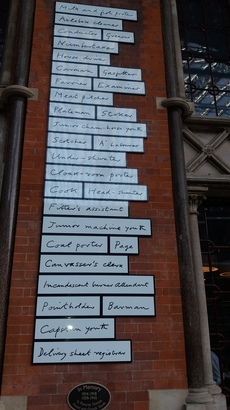 Milk and fish porter
Autobox cleaner
Conductor Greaser
Numbertaker
House diner
Carman Gasfitter
Parcels Examiner
Meat pitcher
Plateman Stoker
Junior chain horse youth
Scotcher A' Labourer
Under-shunter
Cloak-room porter
Cook Head-shunter
Fitter's assistant
Junior machine youth
Coal porter Page
Canvasser's clerk
Incandescent burner attendant
Pointholder Barman
Capstan youth
Delivery sheet registrar
In Memory